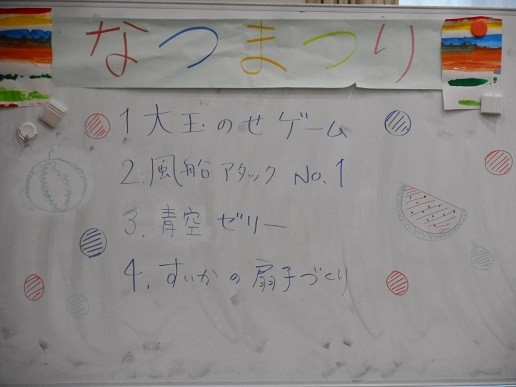 なつまつり
1 大玉のせゲーム
2. 風船アタック No.1
3. 青空ゼリー
4. すいかの扇子づくり